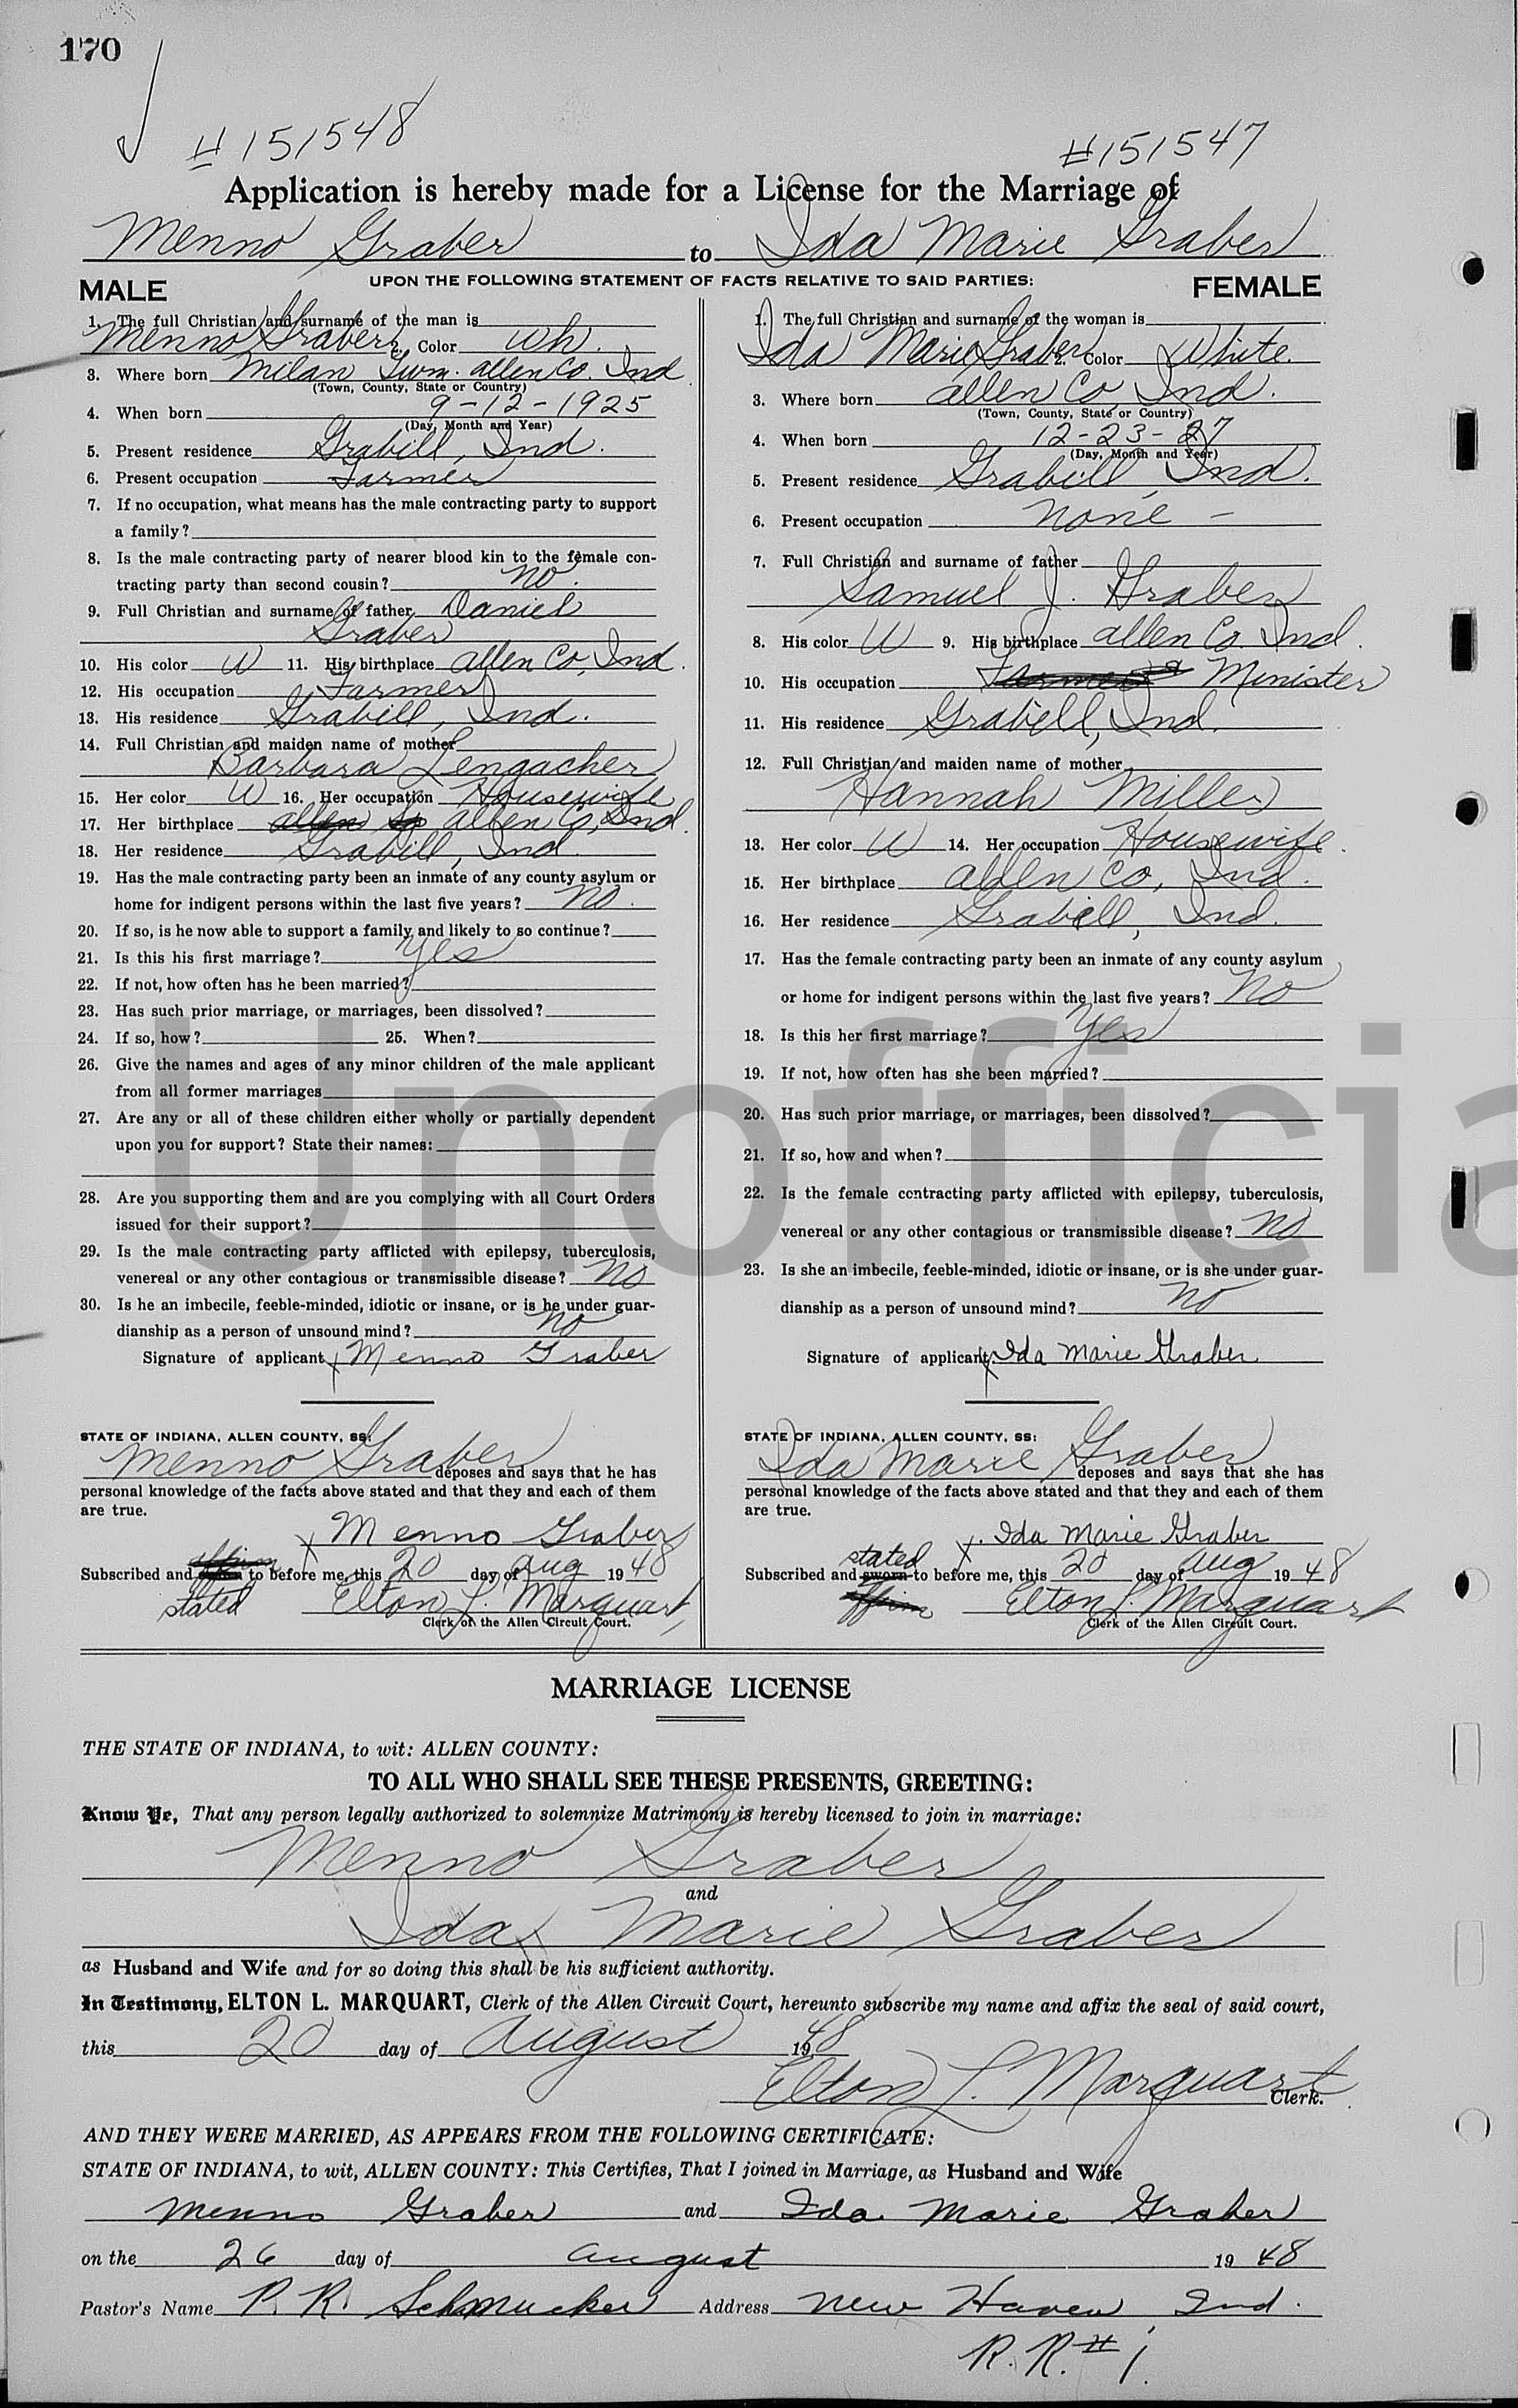 170
# 151548
#151547
Application is hereby made for a License for the Marriage of
Menno Graber to Ida Marie Graber
UPON THE FOLLOWING STATEMENT OF FACTS RELATIVE TO SAID PARTIES:
MALE
1. The full Christian and surname of the man is
Menno Graber 2. Color Wh.
3. Where born Milan Twm. Allen Co. Ind
(Town, County, State or Country)
4. When born 9-12-1925
(Day, Month and Year)
5. Present residence Grabill, Ind.
6. Present occupation Farmer
7. If no occupation, what means has the male contracting party to support
a family?
8. Is the male contracting party of nearer blood kin to the female con-
tracting party than second cousin? no.
9. Full Christian and surname of father Daniel
Graber
10. His color W 11. His birthplace Allen Co, Ind.
12. His occupation Farmer
13. His residence Grabill, Ind.
14. Full Christian and maiden name of mother
Barbara Lengacher
15. Her color W 16. Her occupation Housewife
17. Her birthplace Allen Co Allen Co, Ind.
18. Her residence Grabill, Ind.
19. Has the male contracting party been an inmate of any county asylum or
home for indigent persons within the last five years? no.
20. If so, is he now able to support a family and likely to so continue?
21. Is this his first marriage? Yes
22. If not, how often has he been married?
23. Has such prior marriage, or marriages, been dissolved?
24. If so, how? 25. When?
26. Give the names and ages of any minor children of the male applicant
from all former marriages
27. Are any or all of these children either wholly or partially dependent
upon you for support? State their names:
28. Are you supporting them and are you complying with all Court Orders
issued for their support?
29. Is the male contracting party afflicted with epilepsy, tuberculosis,
venereal or any other contagious or transmissible disease? No
30. Is he an imbecile, feeble-minded, idiotic or insane, or is he under guar-
dianship as a person of unsound mind? no
Signature of applicant x Menno Graber
STATE OF INDIANA, ALLEN COUNTY, SS:
Menno Graber deposes and says that he has
personal knowledge of the facts above stated and that they and each of them
are true.
x Menno Graber
affirm
Subscribed and sworn to before me, this 20 day of Aug 1948
stated Elton L. Marquart
Clerk of the Allen Circuit Court.
FEMALE
1. The full Christian and surname of the woman is
Ida Marie Graber 2. Color White
3. Where born Allen Co, Ind.
(Town, County, State or Country)
4. When born 12-23-27
(Day, Month and Year)
5. Present residence Grabill, Ind.
6. Present occupation none -
7. Full Christian and surname of father
Samuel J. Graber
8. His color W 9. His birthplace Allen Co. Ind.
10. His occupation Farmer Minister
11. His residence Grabill, Ind.
12. Full Christian and maiden name of mother
Hannah Miller
13. Her color W 14. Her occupation Housewife.
15. Her birthplace Allen Co, Ind.
16. Her residence Grabill, Ind.
17. Has the female contracting party been an inmate of any county asylum
or home for indigent persons within the last five years? No
18. Is this her first marriage? Yes
19. If not, how often has she been married?
20. Has such prior marriage, or marriages, been dissolved?
21. If so, how and when?
22. Is the female contracting party afflicted with epilepsy, tuberculosis,
venereal or any other contagious or transmissible disease? No
23. Is she an imbecile, feeble-minded, idiotic or insane, or is she under guar-
dianship as a person of unsound mind? no
Signature of applicant x Ida Marie Graber
STATE OF INDIANA, ALLEN COUNTY, SS:
Ida Marie Graber deposes and says that she has
personal knowledge of the facts above stated and that they and each of them
are true.
x. Ida Marie Graber
stated
Subscribed and sworn to before me, this 20 day of Aug 1948
affirm Elton L. Marquart
Clerk of the Allen Circuit Court.
MARRIAGE LICENSE
THE STATE OF INDIANA, to wit: ALLEN COUNTY:
TO ALL WHO SHALL SEE THESE PRESENTS, GREETING:
Know Ye, That any person legally authorized to solemnize Matrimony is hereby licensed to join in marriage:
Menno Graber
and
Ida Marie Graber
as Husband and Wife and for so doing this shall be his sufficient authority.
In Testimony, ELTON L. MARQUART, Clerk of the Allen Circuit Court, hereunto subscribe my name and affix the seal of said court,
this 20 day of August 1948
Elton L. Marquart Clerk.
AND THEY WERE MARRIED, AS APPEARS FROM THE FOLLOWING CERTIFICATE:
STATE OF INDIANA, to wit, ALLEN COUNTY: This Certifies, That I joined in Marriage, as Husband and Wife
Menno Graber and Ida Marie Graber
on the 26 day of August 1948
Pastor's Name P. R. Schmucker Address New Haven Ind.
R.R. # 1.
Unofficia